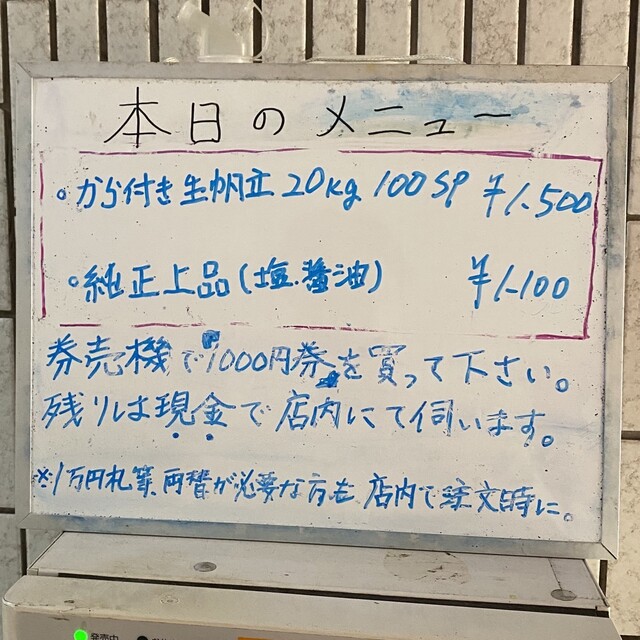 本日のメニュー
。から付き生帆立20kg 100SP ¥1.500
。純正上品(塩.醤油) ¥1.100
券売機で1000円券を買って下さい。
残りは現金で店内にて伺います。
※1万円札等、両替が必要な方も店内で注文時に。
発売中